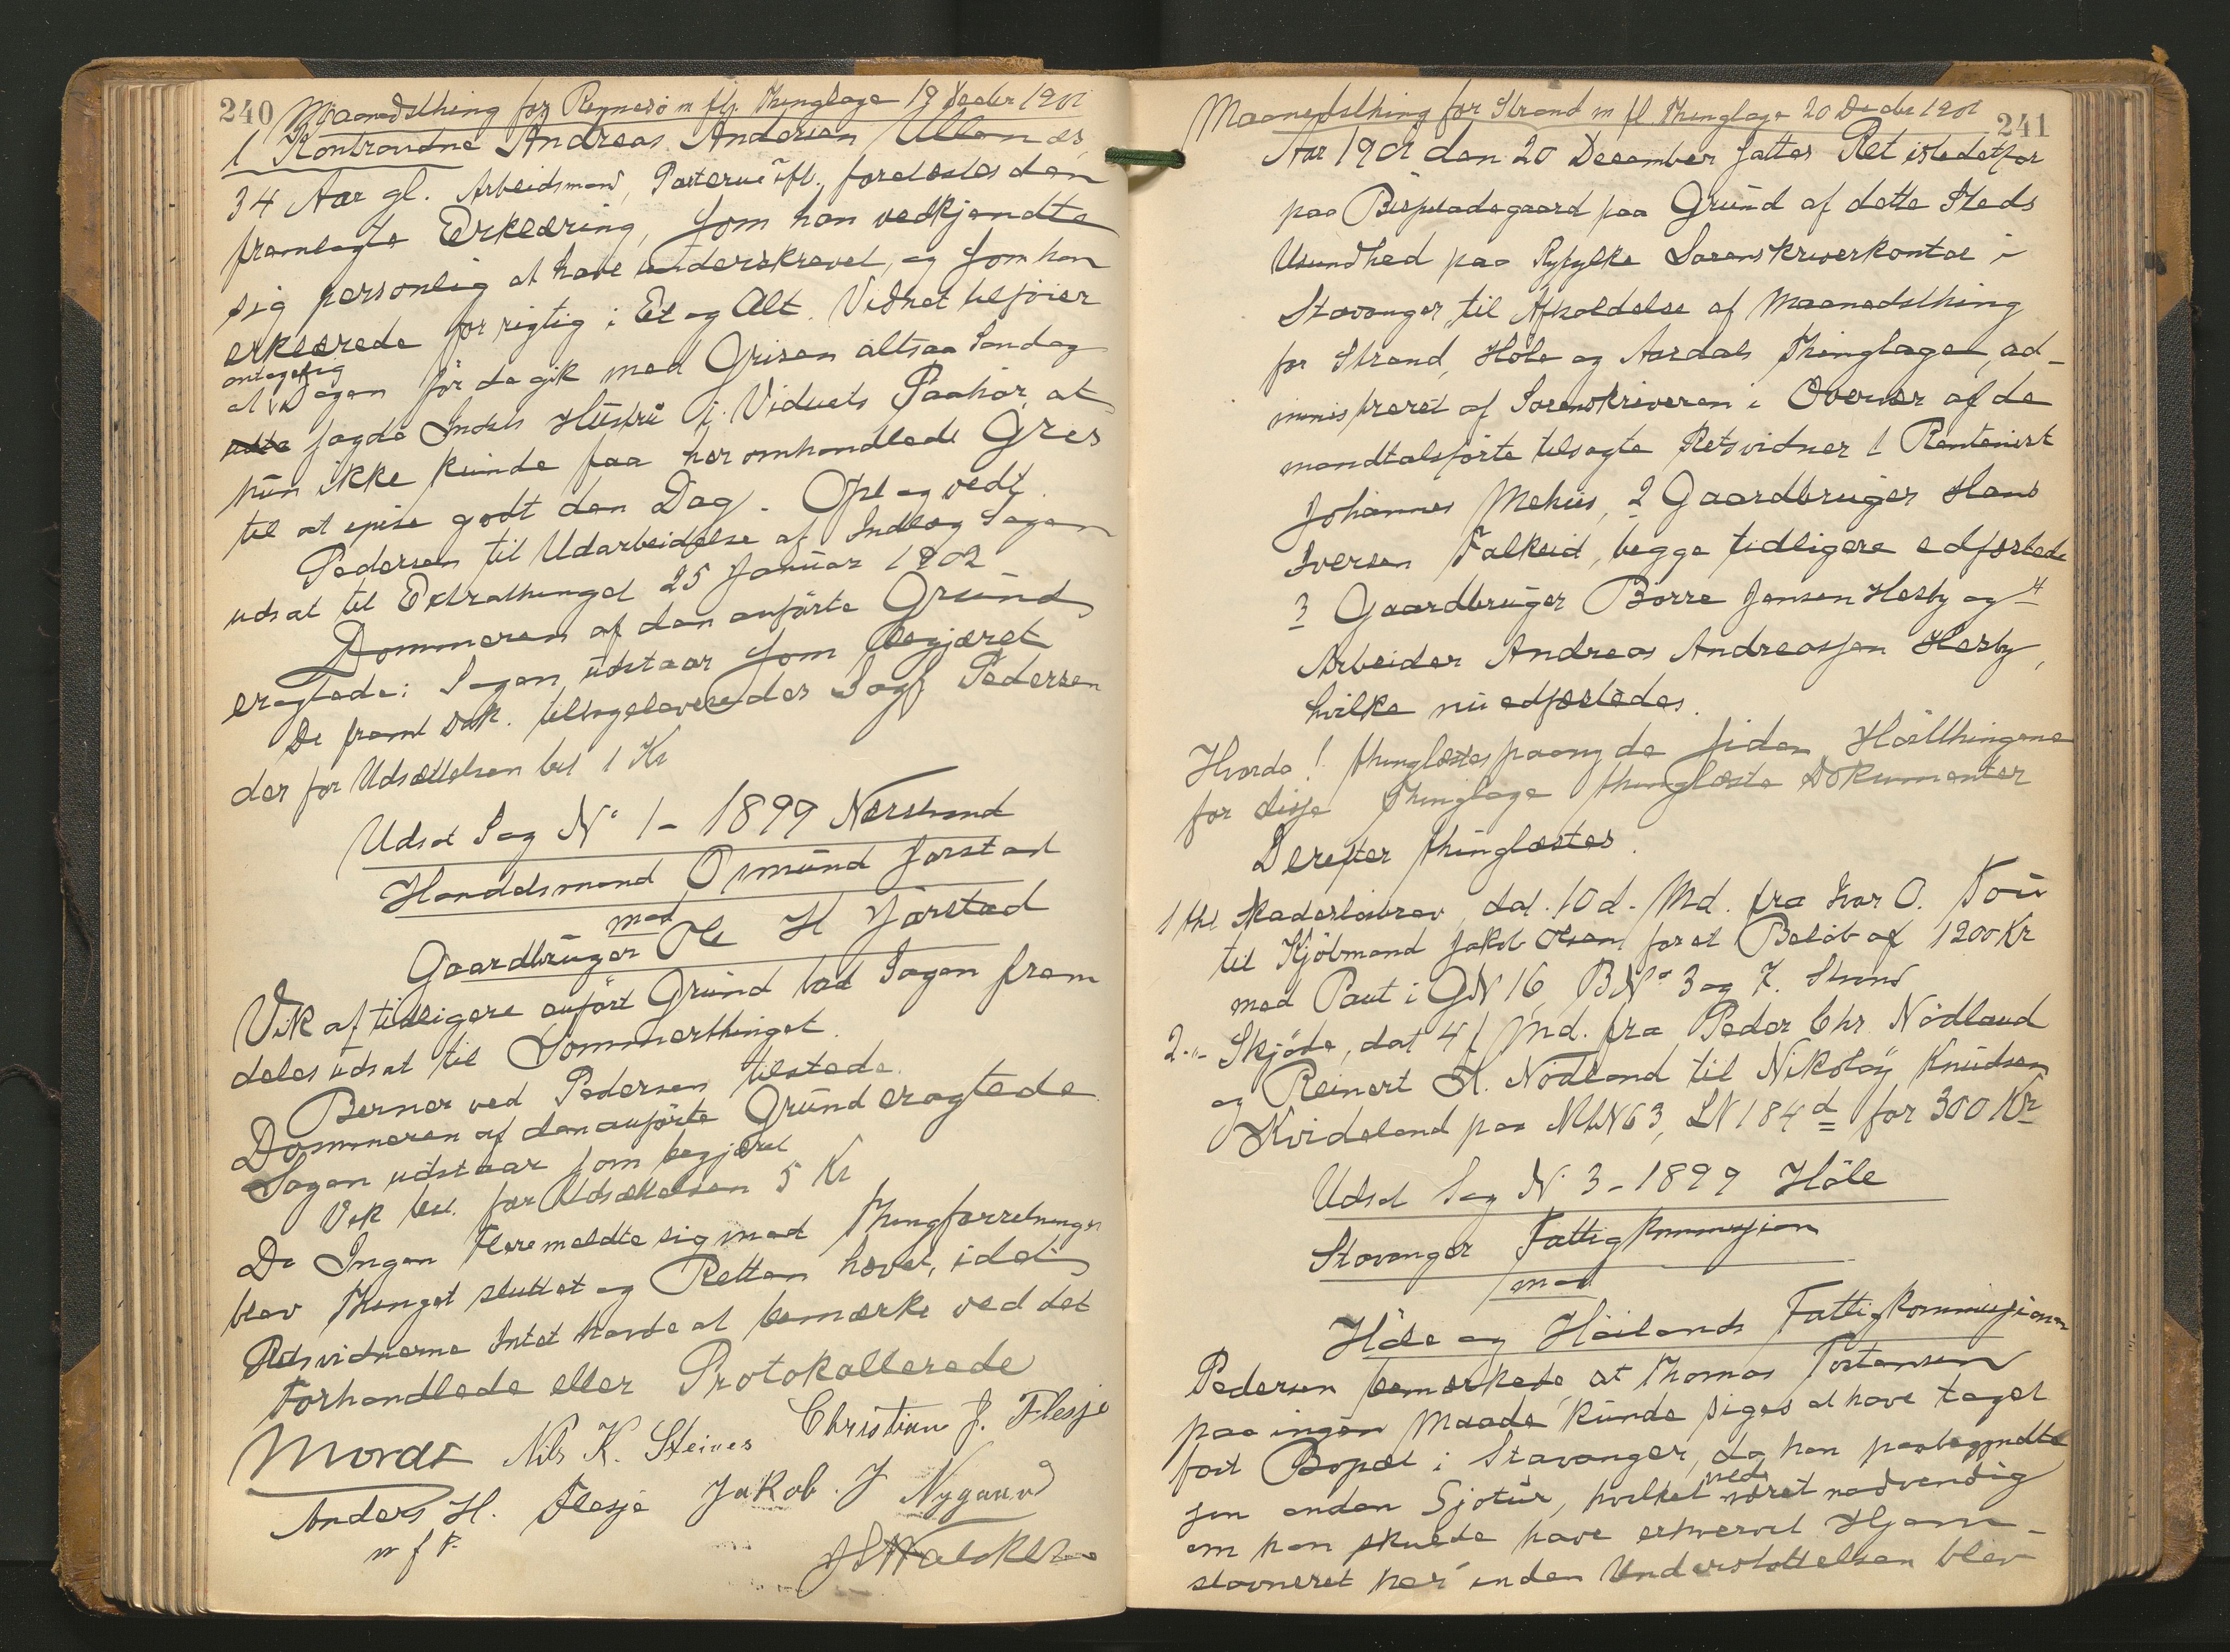 240 Maanedsthing for Rennesø m flr. Thinglage 19 Decbr 1901
1 Kontravidne Andreas Andersen Ullenes,
34 Aar gl. Arbeidsmand, forelæstes den
fremlagte Erklæring, som han vedkjendte
sig personlig at have underskrevet, og som han
erklærede for rigtig i Et og Alt. Vidnet tilføier
antagelig
at Dagen før de gik med Grisen altsaa Søndag
sagde Indst Hustru i Vidnets Paahør, at
hun ikke kunde faa heromhandlede Gris
til at spise godt den Dag. Opl og vedt.
Pedersen til Udarbeidelse af Indlæg Sagen
udsat til Extrathinget 25 Januar 1902
Dommeren af den anførte Grund
eragtede: Sagen udstaar som begjæret
De freml Dok. tilbageleveredes Sagf Pedersen
der for Udsættelsen bet 1 Kr
Udsat Sag No 1 - 1899 Nerstrand
Handelsmand Osmund Jørstad
mod
Gaardbruger Ole H Jørstad
Vik af tidligere anført Grund bad Sagen frem
deles udsat til Sommerthinget.
Berner ved Pedersen tilstede.
Dommeren af den anførte Grund eragtede
Sagen udstaar som begjæret
Vik bet. for Udsættelsen 5 Kr
Da Ingen Flere meldte sig med Thingforretninger
blev Thinget sluttet og Retten hævet, idet
Retsvidnerne Intet havde at bemærke ved det
Forhandlede eller Protokollerede
Nils K. Steines Christian J. Flesje
Anders H. Flesje Jakob. J Nygaard
m f P.
Maanedsthing for Strand m fl. Thinglage 20 Decbr 1901 241
Aar 1901 den 20 December sattes Ret istedetfor
paa Bispeladegaard paa Grund af dette Steds
Usundhed paa Ryfylke Sorenskriverkontor i
Stavanger til Afholdelse af Maanedsthing
for Strand, Høle og Aardals Thinglage, ad-
ministreret af Sorenskriveren i Overvær af de
mandtalsførte tilsagte Retsvidner 1 Rentenist
Johannes Mehus, 2 Gaardbruger Hans
Iversen Falkeid, begge tidligere edfæstede
3 Gaardbruger Børre Jensen Hesby og 4
Arbeider Andreas Andreassen Hesby,
hvilke nu edfæstedes.
Hvorda! thinglæstes paany de siden Høstthingene
for disse Thinglage thinglæste Dokumenter
Derefter thinglæstes.
1 thl Skadesløsbrev, dat. 10 d. Md. fra Ivar O. Tou
til Kjøbmand Jakob Olsen for et Beløb af 1200 Kr
med Pant i GN 16, BNo 3 og 7. Strand
2 -"- Skjøde, dat 4 f Md. fra Peder Chr Nødland
og Reinert K. Nødland til Nikolay Knudsen
Kvideland paa MN 63, LN 184 d for 300 Kr
Udsat Sag N. 3 - 1899 Høle
Stavanger Fattigkommission
mod
Høle og Høilands Fattigkommissioner
Pedersen bemærkede at Thomas Tostensen
paa ingen Maade kunde siges at have taget
fast Bopæl i Stavanger, da han paabegyndte
sin anden Sjøtur, hvilket været nødvendig
om han skulde have erhvervet Hjem-
stavnsret her inden Understøttelsen blev